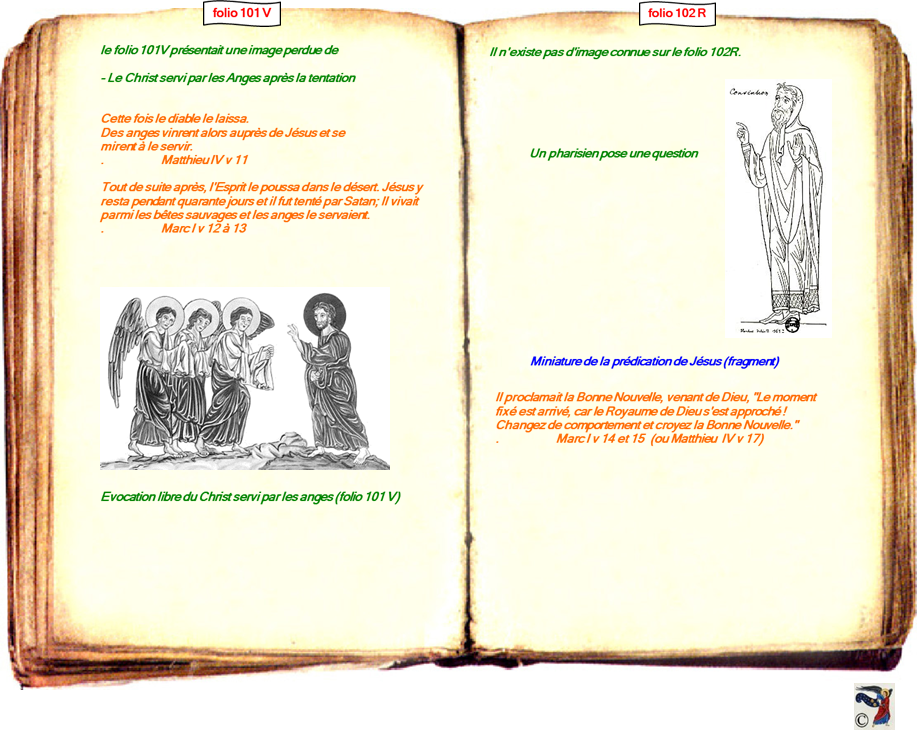 folio 101 V
le folio 101V présentait une image perdue de
- Le Christ servi par les Anges après la tentation
Cette fois le diable le laissa.
Des anges vinrent alors auprès de Jésus et se
mirent à le servir.
. Matthieu IV v 11
Tout de suite après, l'Esprit le poussa dans le désert. Jésus y
resta pendant quarante jours et il fut tenté par Satan; Il vivait
parmi les bêtes sauvages et les anges le servaient.
. Marc I v 12 à 13
Evocation libre du Christ servi par les anges (folio 101 V)
folio 102 R
Il n'existe pas d'image connue sur le folio 102R.
Un pharisien pose une question
Miniature de la prédication de Jésus (fragment)
Il proclamait la Bonne Nouvelle, venant de Dieu, "Le moment
fixé est arrivé, car le Royaume de Dieu s'est approché !
Changez de comportement et croyez la Bonne Nouvelle."
. Marc I v 14 et 15 (ou Matthieu IV v 17)
©